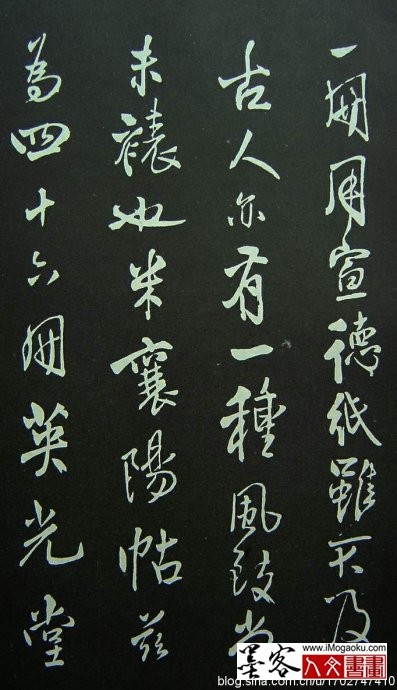 一冊用宣德紙雖不及
古人亦有一種風致尚
未裱也米襄陽帖
為四十六冊英光堂
www.iMogaoku.com
墨客 人文書畫
blog.sina.com.cn/u/1702747410